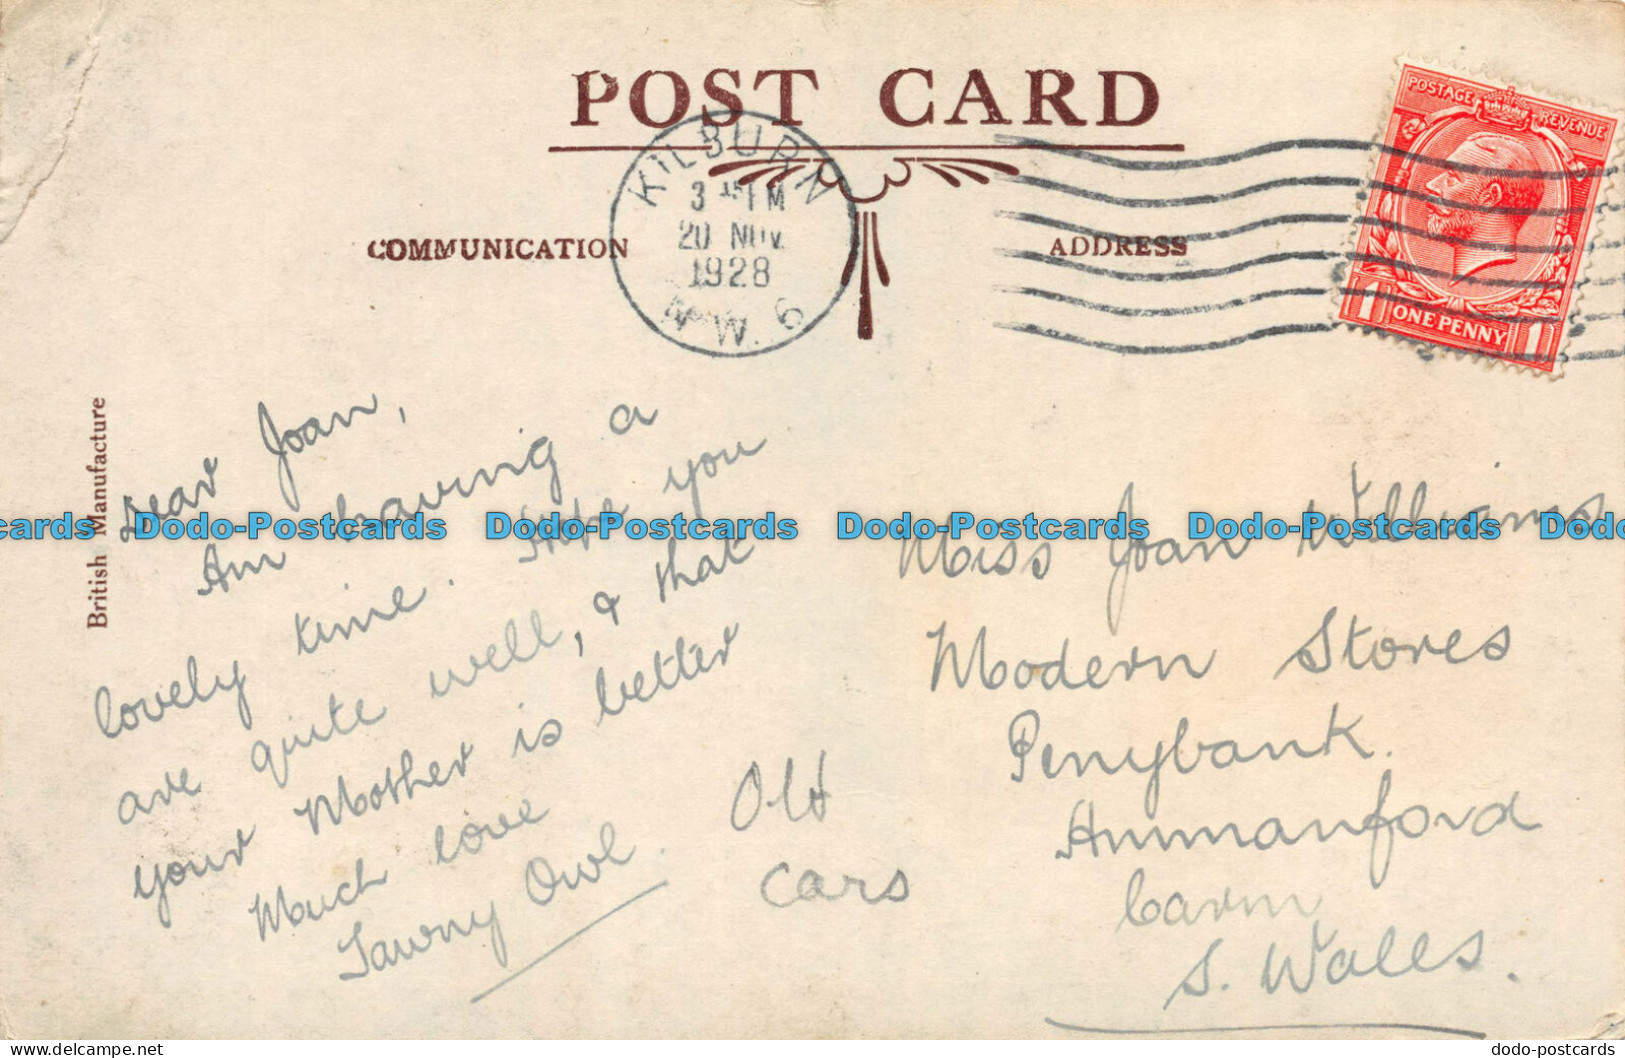 POST CARD
KILBURN
3 PM
20 NOV
1928
N.W. 6
POSTAGE REVENUE
1 ONE PENNY 1
COMMUNICATION
ADDRESS
British Manufacture
Dear Joan,
Am having a
lovely time. Hope you
are quite well, & that
your Mother is better
Much love
Tawny Owl.
Old
Cars
Miss Joan Williams
Modern Stores
Penybank.
Ammanford
Carm
S. Wales.
cards Dodo-Postcards Dodo-Postcards Dodo-Postcards Dodo-Postcards Do
Dodo-Postcards.com
dodo-postcards